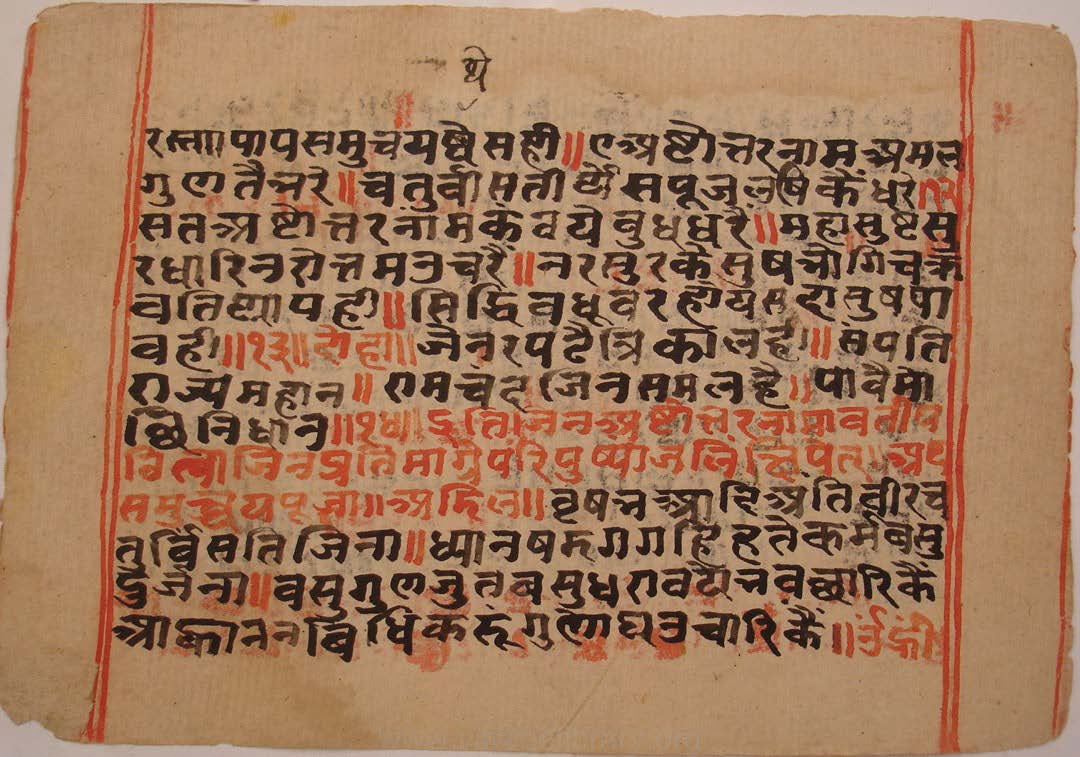 थे
रलापापसमुचयष्वैसही॥ एअष्टोत्तरनामअमल
गुणतैन्नरे॥ चतुर्वीसतीर्थे सपूजलेषिकैं धरे॥१२
सतअष्टोत्तरनामकवयेबुधधरै॥ महासुष्टसु
रधारिनरोत्तमउचरै॥ नरसुरकेसुषभोगिचक्र
वतिथापही॥ सिद्धिवधूवरहोयस रासुषपा
वही॥१३॥ दोहा॥ जैनरपटैत्रिकालही॥ संपति
राज्यमहान॥ रामचंद्र जिनसमलहै॥ पावैमो
छिनिधान॥१४॥ इति जिनअष्टोत्तरनामा
जिनप्रतिमाग्रैपरिपुष्पांजलिं क्षिपेत्॥ अथ
समुच्चयपूजा॥ अडिल॥ वृषभआदिअंतिवीरच
तुर्विसतिजिना॥ ध्यानषड्गगहि हतेकर्मवसु
दुर्जना॥ वसुगुणजुतवसुधरा छारिकैं
आह्वानन बिधिकरूं गुणौघउचारिकैं॥